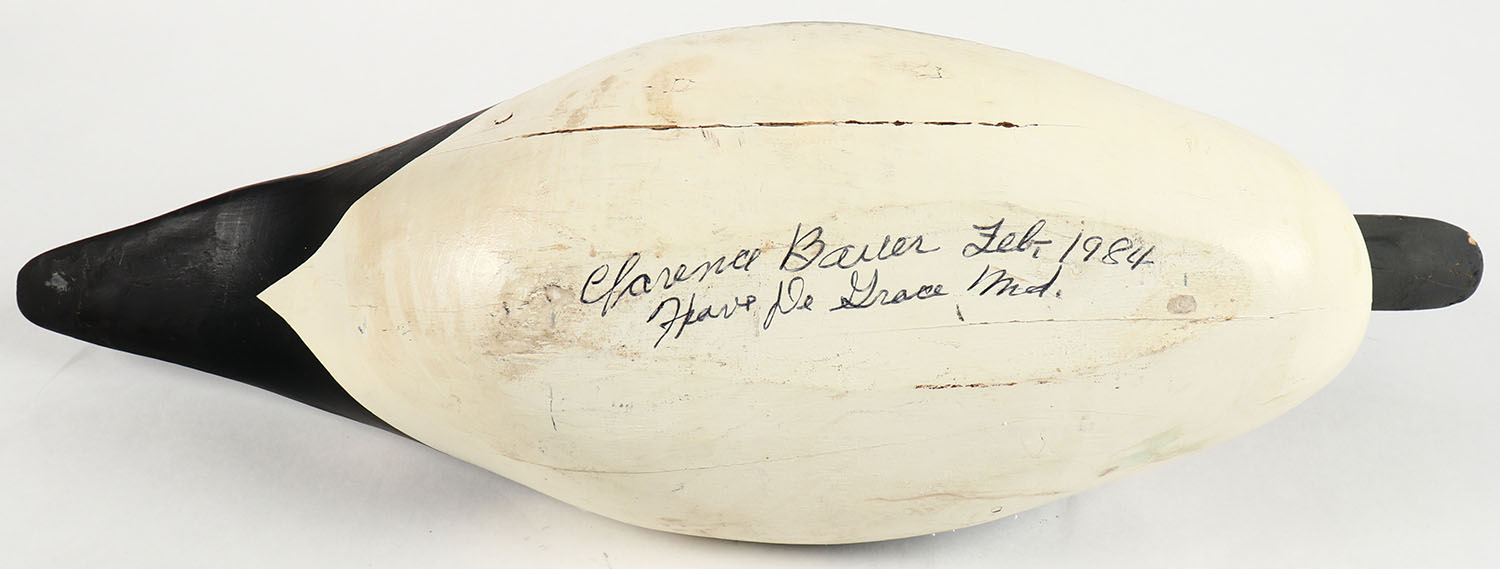 Clarence Bauer Feb, 1984
Havre De Grace Md.